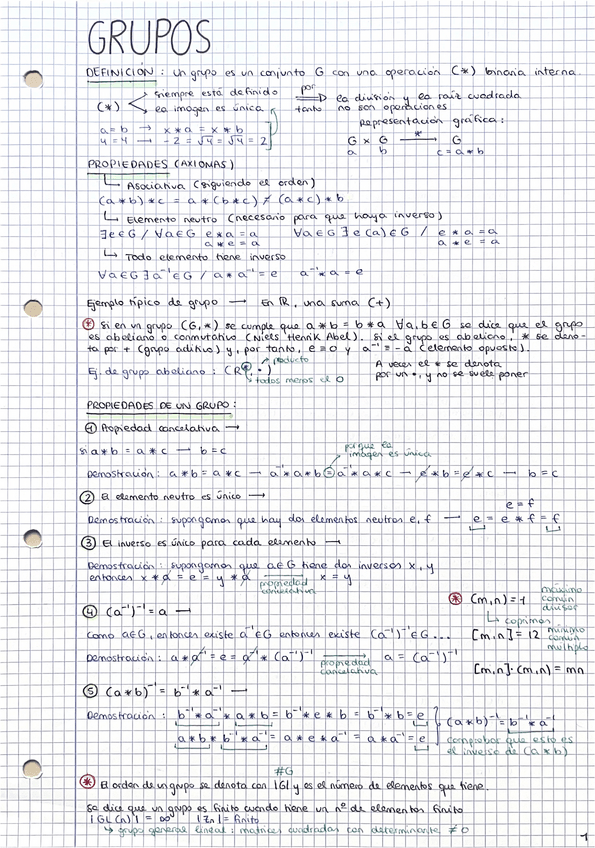 GRUPOS
DEFINICIÓN: Un grupo es un conjunto G con una operación (*) binaria interna.
(*) siempre está definido
la imagen es única
por tanto ⟹ la división y la raíz cuadrada
no son operaciones
a = b → x * a = x * b
4 = 4 → -2 = √4 = √4 = 2
Representación gráfica:
G × G →* G
a b c = a * b
PROPIEDADES (AXIOMAS)
↳ Asociativa (siguiendo el orden)
(a * b) * c = a * (b * c) ≠ (a * c) * b
↳ Elemento neutro (necesario para que haya inverso)
∃e∈G / ∀a∈G e * a = a ∀a∈G ∃e(a)∈G / e * a = a
a * e = a a * e = a
↳ Todo elemento tiene inverso
∀a∈G ∃a⁻¹∈G / a * a⁻¹ = e a⁻¹ * a = e
Ejemplo típico de grupo → En ℝ, una suma (+)
* Si en un grupo (G, *) se cumple que a * b = b * a ∀a,b∈G se dice que el grupo
es abeliano o conmutativo (Niels Henrik Abel). Si el grupo es abeliano, * se deno-
ta por + (grupo aditivo) y, por tanto, e = 0 y a⁻¹ = -a (elemento opuesto).
Ej. de grupo abeliano: (ℝ*, ·)
producto
todos menos el 0
A veces el * se denota
por un ·, y no se suele poner
PROPIEDADES DE UN GRUPO:
1 Propiedad cancelativa →
si a * b = a * c → b = c
porque la
imagen es única
Demostración: a * b = a * c → a⁻¹ * a * b = a⁻¹ * a * c → e * b = e * c → b = c
2 El elemento neutro es único →
e = f
Demostración: supongamos que hay dos elementos neutros e, f → e = e * f = f
3 El inverso es único para cada elemento →
Demostración: supongamos que a∈G tiene dos inversos x, y
entonces x * a = e = y * a → x = y
propiedad
cancelativa
* (m,n) = 1 máximo común divisor
↳ coprimos
[m,n] = 12 mínimo común múltiplo
[m,n]·(m,n) = mn
4 (a⁻¹)⁻¹ = a →
Como a∈G, entonces existe a⁻¹∈G entonces existe (a⁻¹)⁻¹∈G...
Demostración: a * a⁻¹ = e = a⁻¹ * (a⁻¹)⁻¹ → a = (a⁻¹)⁻¹
propiedad
cancelativa
5 (a * b)⁻¹ = b⁻¹ * a⁻¹ →
Demostración: b⁻¹ * a⁻¹ * a * b = b⁻¹ * e * b = b⁻¹ * b = e
a * b * b⁻¹ * a⁻¹ = a * e * a⁻¹ = a * a⁻¹ = e
(a * b)⁻¹ = b⁻¹ * a⁻¹
comprobar que esto es
el inverso de (a * b)
#G
* El orden de un grupo se denota con |G| y es el número de elementos que tiene.
Se dice que un grupo es finito cuando tiene un nº de elementos finito
|GL(n)| = ∞ |Zn| = finito
↳ grupo general lineal: matrices cuadradas con determinante ≠ 0
1